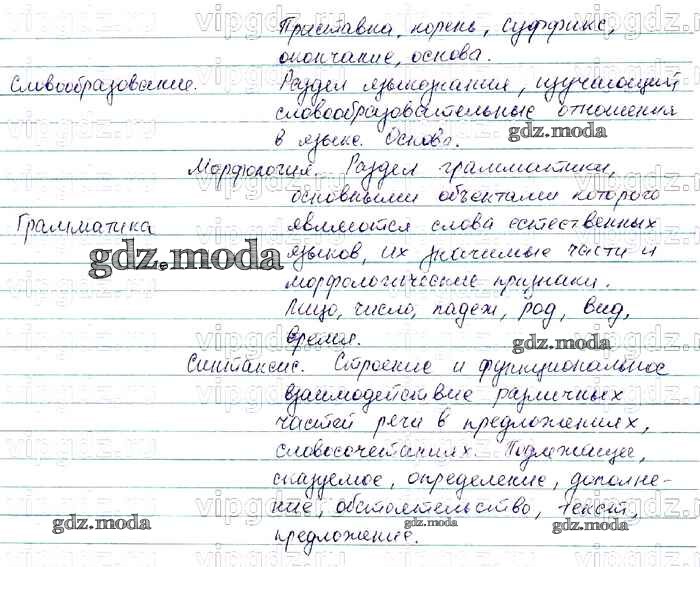 Приставка, корень, суффикс,
окончание, основа.
Словообразование. Раздел языкознания, изучающий
словообразовательные отношения
в языке. Основа.
gdz.moda
Морфология. Раздел грамматики,
основными объектами которого
Грамматика являются слова естественных
gdz.moda языков, их значимые части и
морфологические признаки.
Лицо, число, падеж, род, вид,
время.
gdz.moda
Синтаксис. Строение и функциональное
взаимодействие различных
частей речи в предложениях,
словосочетаниях. Подлежащее,
сказуемое, определение, дополне-
ние, обстоятельство, текст,
gdz.moda gdz.moda gdz.moda
предложение.